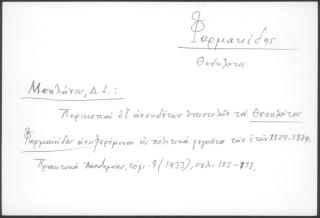 Φαρμακίδης
Θεόκλητος
Μπαλάνος, Δ Σ.:
Περικοπαί ἐξ ἀνεκδότων ἐπιστολῶν τοῦ Θεοκλήτου
Φαρμακίδου ἀναφερόμεναι εἰς πολιτικά γεγονότα τῶν ἐτῶν 1829-1834.
Πρακτικά Ἀκαδημίας, τόμ. 8 (1933), σελ. 105-111.